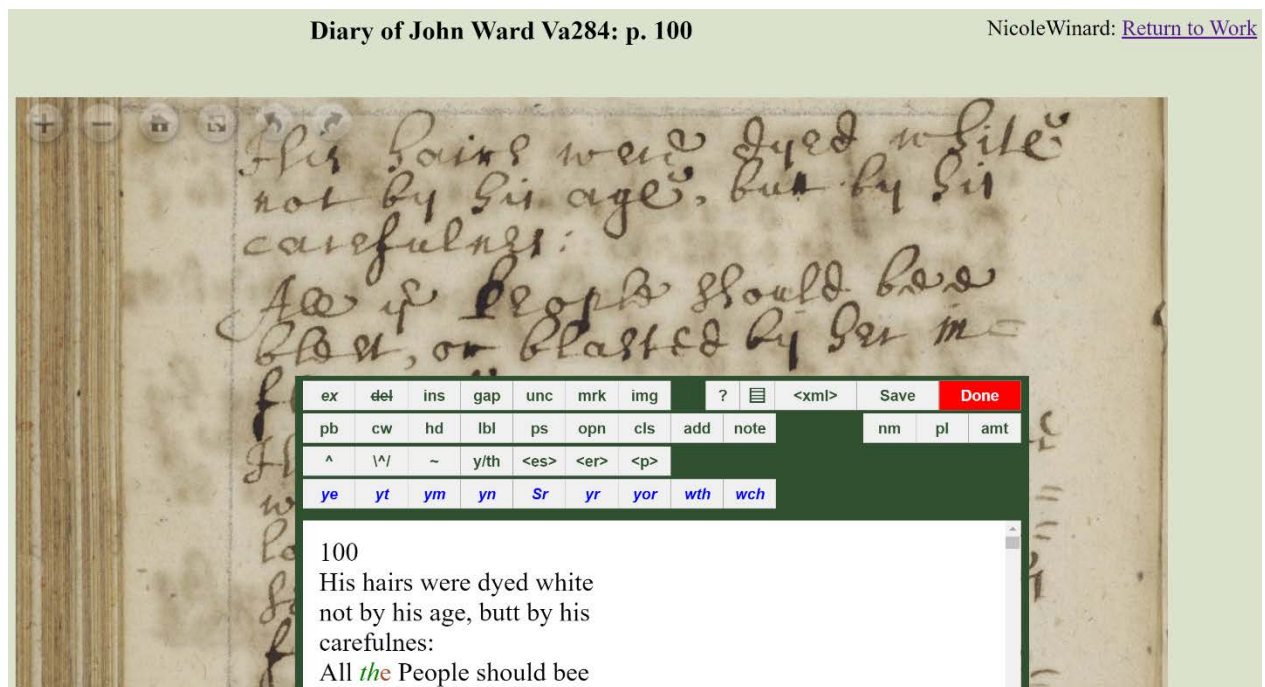 Diary of John Ward Va284: p. 100
NicoleWinard: Return to Work
His hairs were dyed white
not by his age, but by his
carefulnes:
All ye People should bee
blest, or blasted by her in=
ex del ins gap unc mrk img ? <xml> Save Done
pb cw hd lbl ps opn cls add note nm pl amt
^ \^/ ~ y/th <es> <er> <p>
ye yt ym yn Sr yr yor wth wch
100
His hairs were dyed white
not by his age, butt by his
carefulnes:
All the People should bee